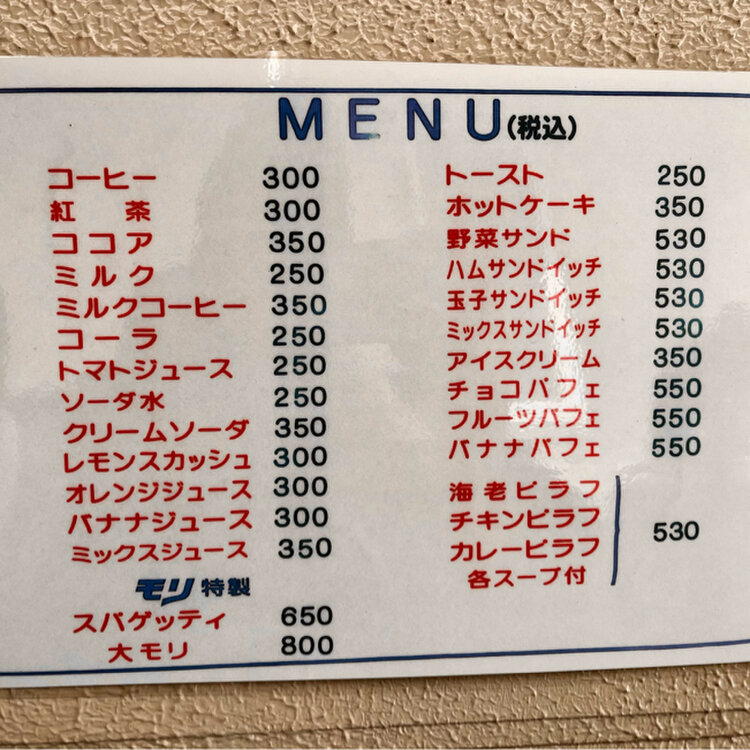 MENU(税込)
コーヒー 300
紅茶 300
ココア 350
ミルク 250
ミルクコーヒー 350
コーラ 250
トマトジュース 250
ソーダ水 250
クリームソーダ 350
レモンスカッシュ 300
オレンジジュース 300
バナナジュース 300
ミックスジュース 350
モリ特製
スパゲッティ 650
大モリ 800
トースト 250
ホットケーキ 350
野菜サンド 530
ハムサンドイッチ 530
玉子サンドイッチ 530
ミックスサンドイッチ 530
アイスクリーム 350
チョコパフェ 550
フルーツパフェ 550
バナナパフェ 550
海老ピラフ
チキンピラフ
カレーピラフ
各スープ付
530